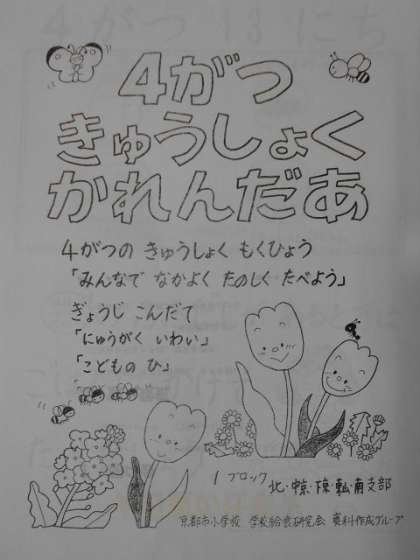 4がつ
きゅうしょく
かれんだあ
4がつの きゅうしょく もくひょう
「みんなで なかよく たのしく たべよう」
ぎょうじ こんだて
「にゅうがく いわい」
「こどもの ひ」
1 ブロック 北・中京・下京・右京・南支部
京都市小学校 学校給食研究会 資料作成グループ